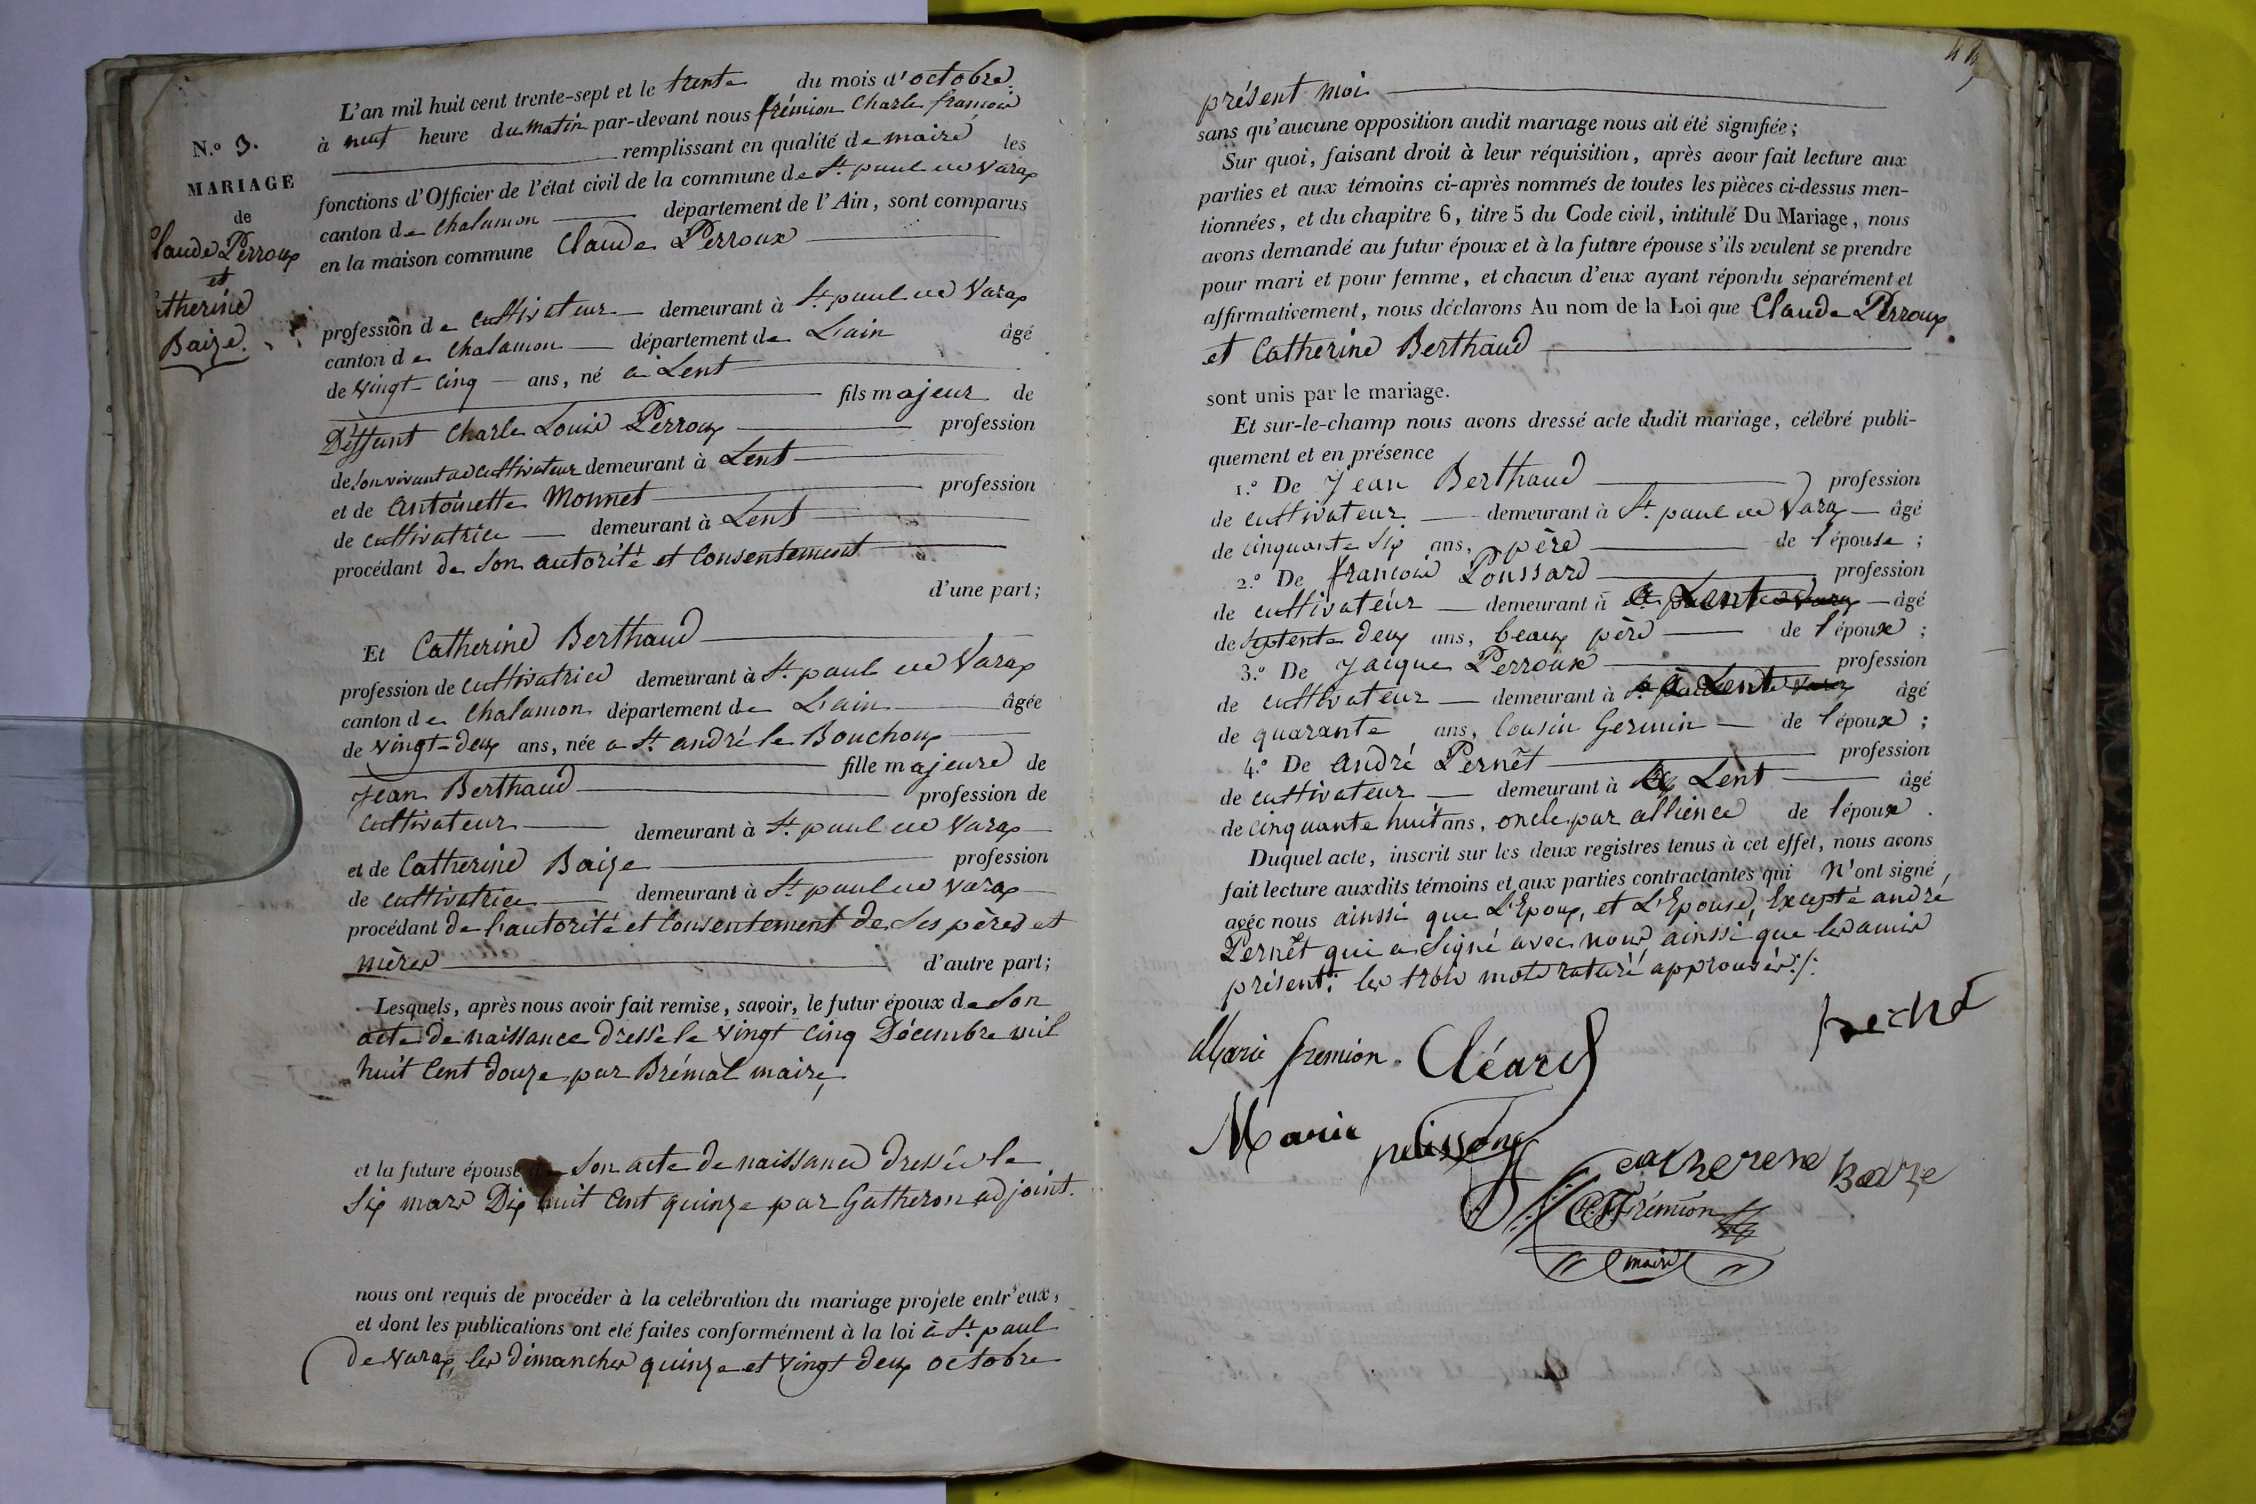 N.º 3.
MARIAGE
de
Claude Perroux
et
Catherine
Baize.
L'an mil huit cent trente-sept et le trente du mois d'octobre.
à neuf heure du matin par-devant nous frémion Charle francois
remplissant en qualité de maire les
fonctions d'Officier de l'état civil de la commune de St. paul de Varax
canton de Chalamon département de l'Ain, sont comparus
en la maison commune Claude Perroux
profession de cultivateur demeurant à St. paul de Varax
canton de Chalamon département de L'ain âgé
de vingt-cinq ans, né à Lent
fils majeur de
Déffunt Charle Louis Perroux profession
de son vivant de cultivateur demeurant à Lent
et de Antoinette Monnet profession
de cultivatrice demeurant à Lent
procédant de son autorité et Consentement
d'une part;
Et Catherine Berthaud
profession de cultivatrice demeurant à St. paul de Varax
canton de Chalamon département de L'ain âgée
de vingt-deux ans, née a St. andré le Bouchoux
fille majeure de
Jean Berthaud profession de
cultivateur demeurant à St. paul de Varax
et de Catherine Baize profession
de cultivatrice demeurant à St. paul de Varax
procédant de l'autorité et Consentement de ses pères et
mères d'autre part;
Lesquels, après nous avoir fait remise, savoir, le futur époux de Son
acte de naissance dressé le vingt cinq Décembre mil
huit Cent douze par Brémal maire,
et la future épouse de Son acte de naissance dressée le
Six mars Dix huit Cent quinze par Gatheron adjoint.
nous ont requis de procéder à la celébration du mariage projete entr'eux,
et dont les publications ont eté faites conformément à la loi à St. paul
de Varax, les dimanches quinze et vingt deux octobre
présent moi
sans qu'aucune opposition audit mariage nous ait été signifiée;
Sur quoi, faisant droit à leur réquisition, après avoir fait lecture aux
parties et aux témoins ci-après nommés de toutes les pièces ci-dessus men-
tionnées, et du chapitre 6, titre 5 du Code civil, intitulé Du Mariage, nous
avons demandé au futur époux et à la future épouse s'ils veulent se prendre
pour mari et pour femme, et chacun d'eux ayant répondu séparément et
affirmativement, nous déclarons Au nom de la Loi que Claude Perroux
et Catherine Berthaud
sont unis par le mariage.
Et sur-le-champ nous avons dressé acte dudit mariage, célébré publi-
quement et en présence
1.º De Jean Berthaud profession
de cultivateur demeurant à St. paul de Varax âgé
de cinquante six ans, père de l'épouse;
2.º De francois Poussard profession
de cultivateur demeurant à Lent âgé
de septente deux ans, beaux père de l'époux;
3.º De Jacque Perroux profession
de cultivateur demeurant à Lent âgé
de quarante ans, Cousin Germin de l'époux;
4.º De André Pernet profession
de cultivateur demeurant à Lent âgé
de cinquante huit ans, oncle par allience de l'époux.
Duquel acte, inscrit sur les deux registres tenus à cet effet, nous avons
fait lecture auxdits témoins et aux parties contractantes qui N'ont signé,
avec nous ainssi que L'Epoux, et L'Epouse, Excepté andré
Pernet qui a Signé avec nous, ainssi que les amis
présent. les trois mots raturé approuvés./.
Marie fremion. Cléard
Marie pelisson
catherene Baize
Frémion
maire